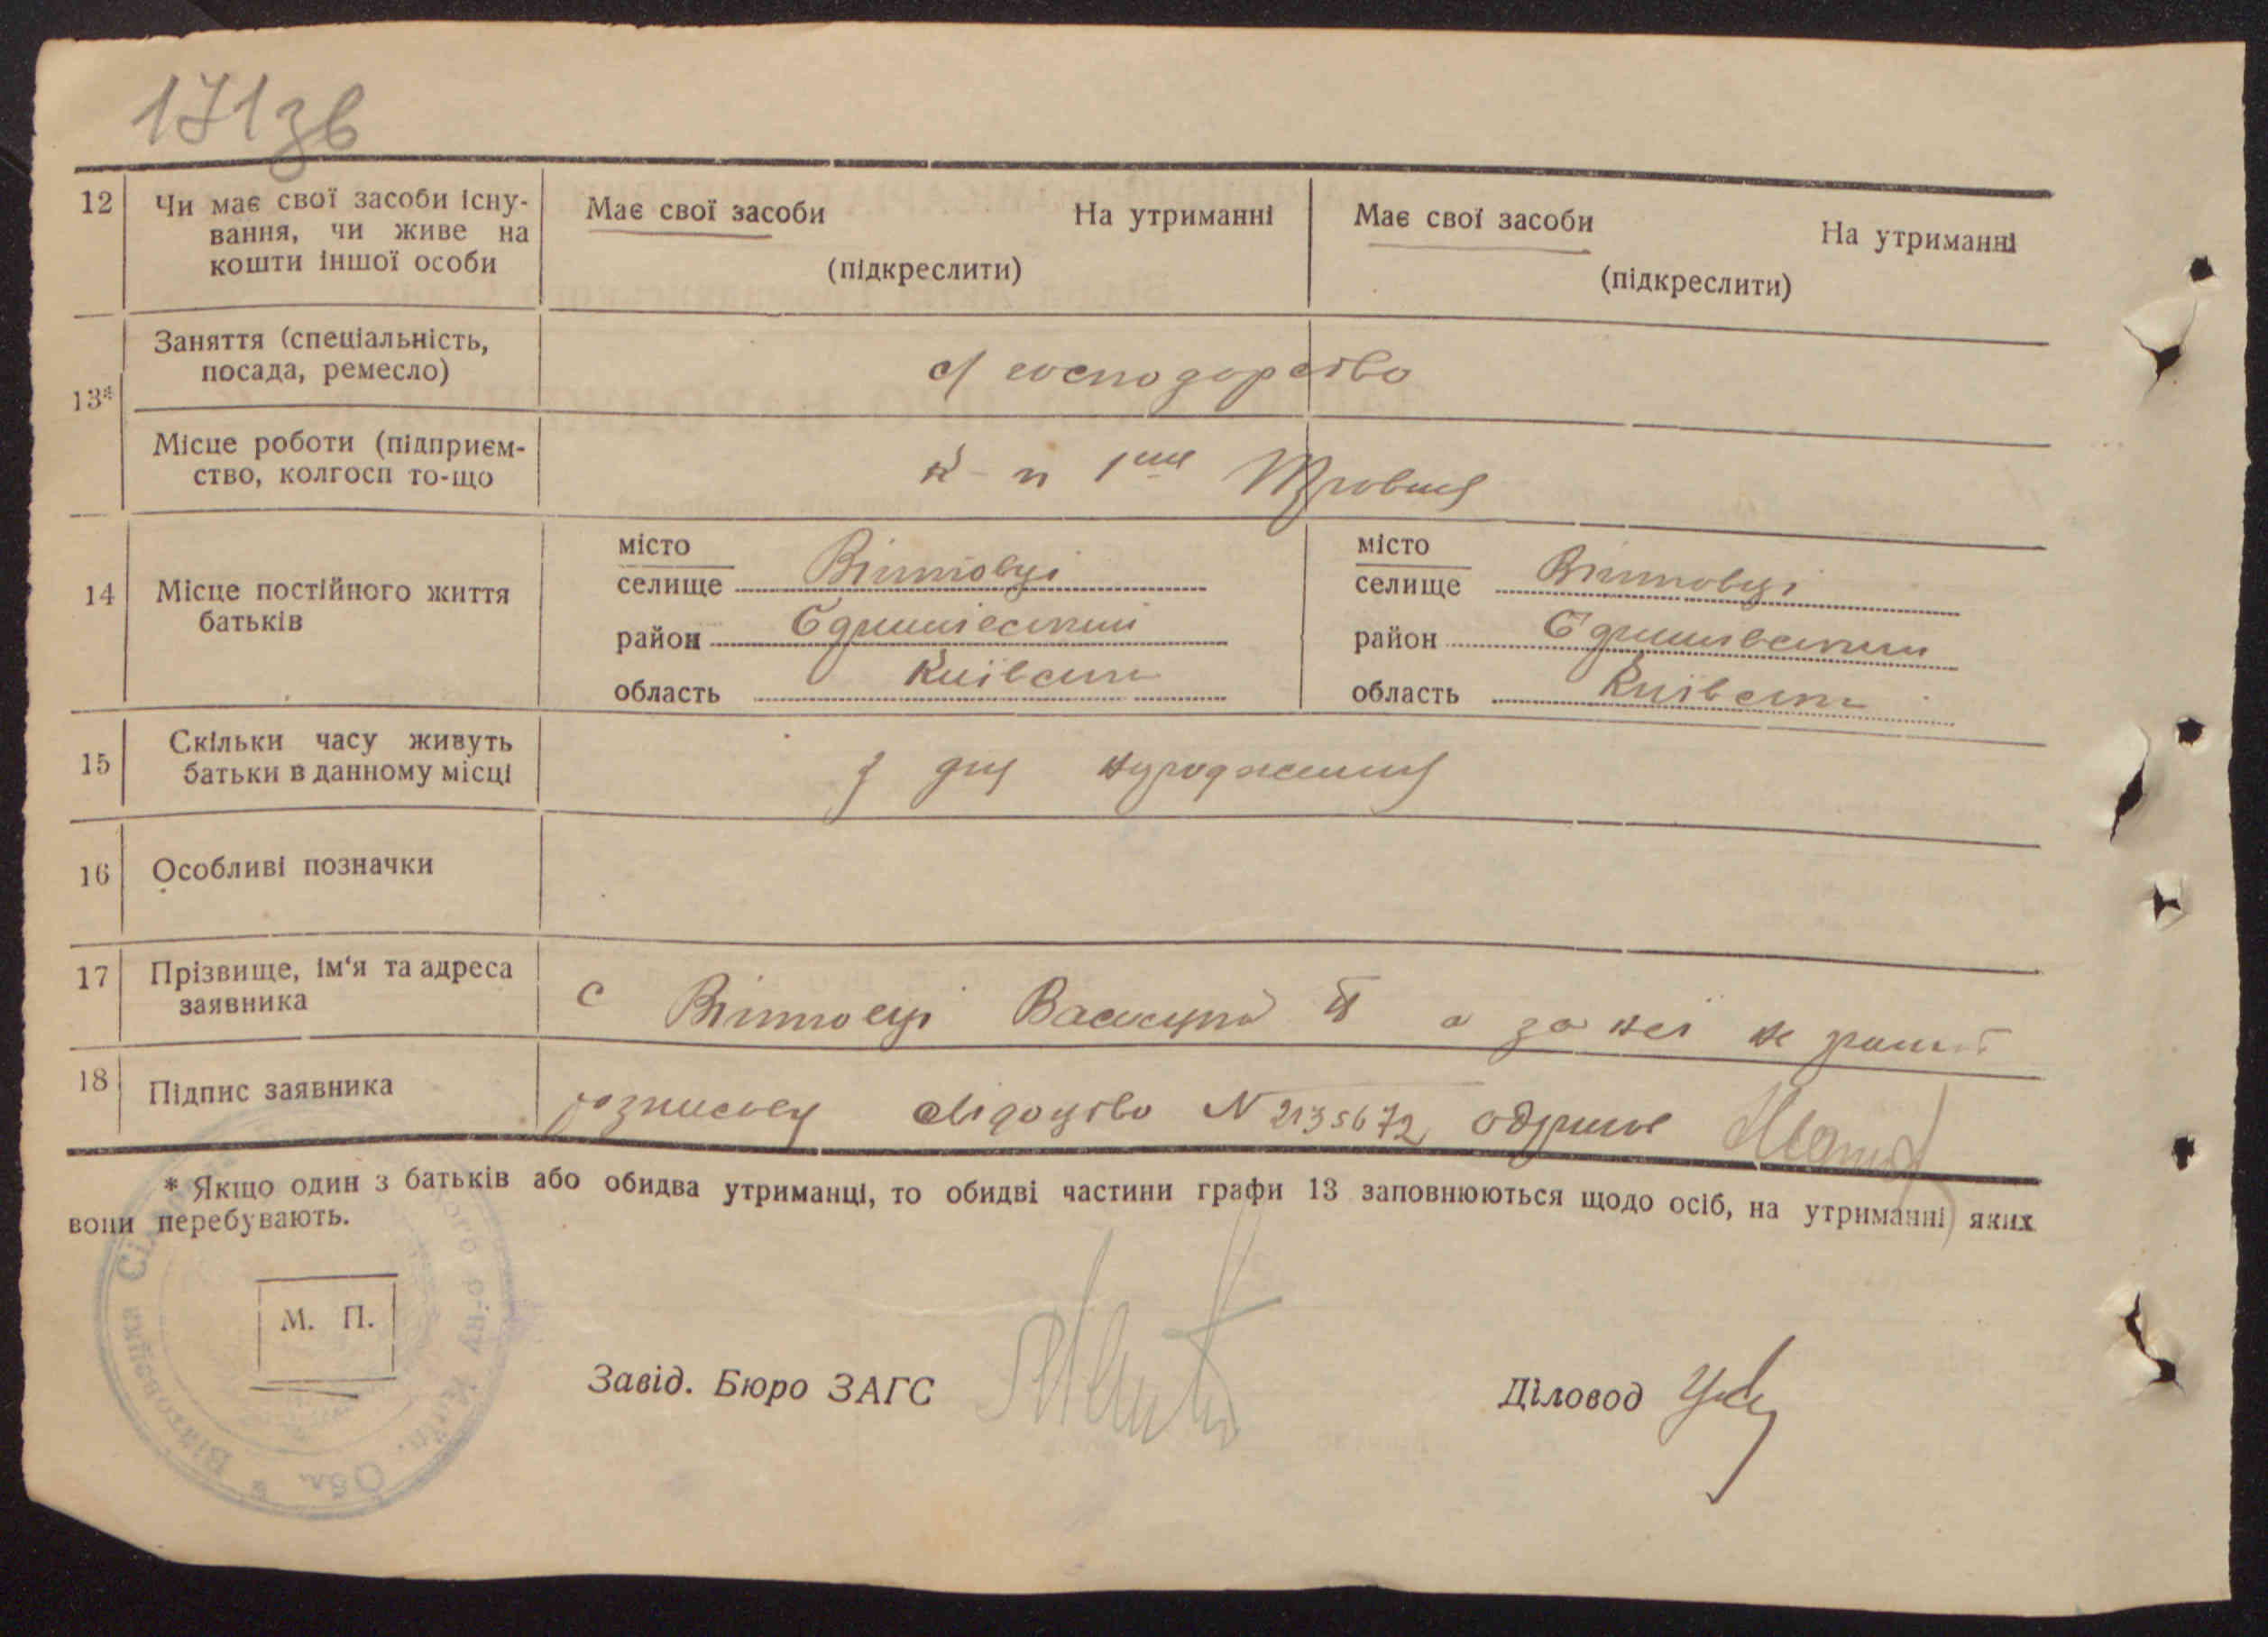 171зв
12 Чи має свої засоби існу-
вання, чи живе на
кошти іншої особи
Має свої засоби На утриманні
(підкреслити)
Має свої засоби На утриманні
(підкреслити)
13*
Заняття (спеціальність,
посада, ремесло)
с/господарство
Місце роботи (підприєм-
ство, колгосп то-що
к-п 1ше Травня
14 Місце постійного життя
батьків
місто
селище Війтовці
район
область Київськ
місто
селище Війтовці
район
область Київськ
15 Скільки часу живуть
батьки в данному місці
З дня народження
16 Особливі позначки
17 Прізвище, ім'я та адреса
заявника
с Війтовці а за неї не грам
18 Підпис заявника
розписуюсь свідоцтво N 2135672 одержав
* Якщо один з батьків або обидва утриманці, то обидві частини графи 13 заповнюються щодо осіб, на утриманні яких
вони перебувають.
М. П.
Завід. Бюро ЗАГС
Діловод